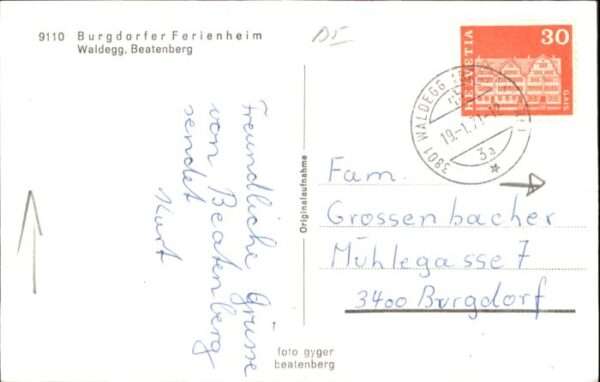 9110 Burgdorfer Ferienheim
Waldegg, Beatenberg
Freundliche Grüsse
von Beatenberg
sendet
Kurt
Originalaufnahme
foto gyger
beatenberg
HELVETIA 30
GAIS
3801 WALDEGG
19.-1.71-
3a
Fam.
Grossenbacher
Mühlegasse 7
3400 Burgdorf